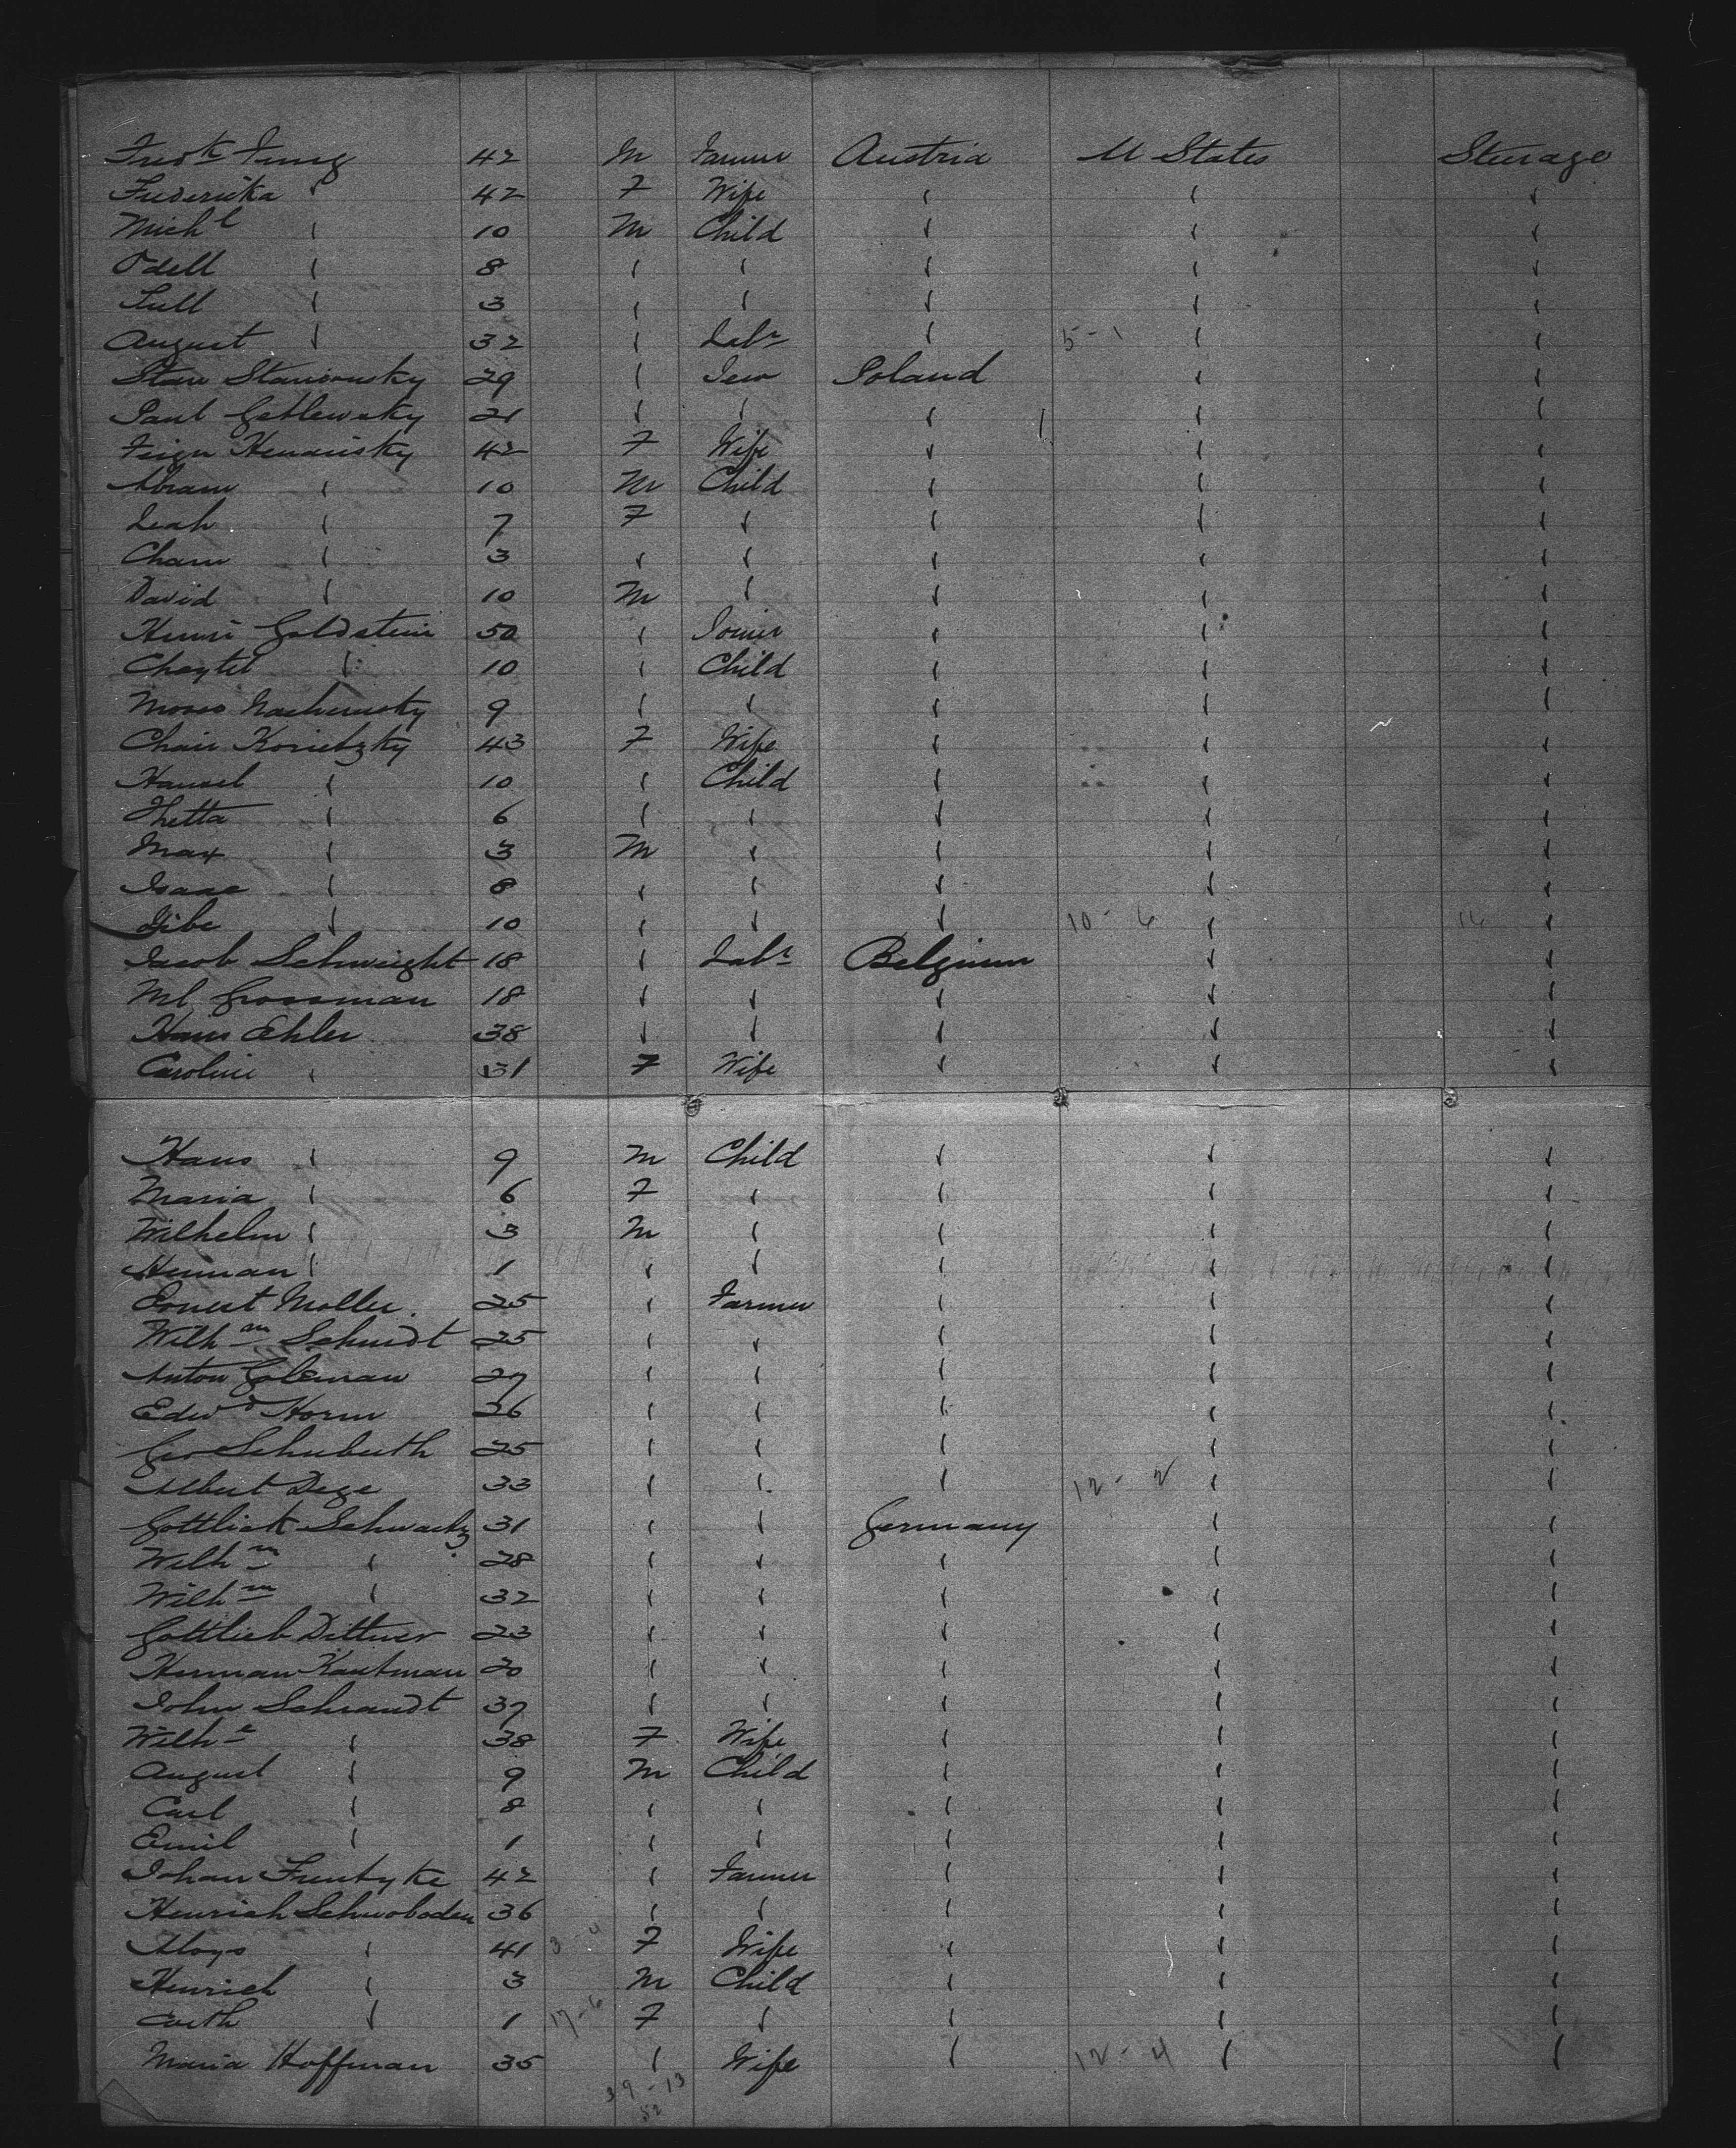 Fredk Jung 42 M Farmer Austria U States Steerage
Frederika " 42 F Wife " " "
Michl " 10 M Child " " "
Odell " 8 " " " " "
" 3 " " " " "
August " 32 " Labr " 5-1 " "
Stan 29 " Jew Poland " "
Paul 21 " " " " "
42 F Wife " " "
Abram " 10 M Child " " "
Leah " 7 F " " " "
Cham " 3 " " " " "
David " 10 M " " " "
Henri Goldstein 50 " Joiner " " "
Chaytel " 10 " Child " " "
Moses 9 " " " " "
Chaie Korietzky 43 F Wife " " "
" 10 " Child " " "
Thetta " 6 " " " " "
Max " 3 M " " " "
Isaac " 8 " " " " "
" 10 " " " 10-6 " "
Jacob Schwight 18 " Labr Belgium " "
Ml Grossman 18 " " " " "
Hans Ehler 38 " " " " "
Caroline " 31 F Wife " " "
Hans " 9 M Child " " "
Maria " 6 F " " " "
Wilhelm " 3 M " " " "
Herman " 1 " " " " "
Ernest Moller 25 " Farmer " " "
Wilhm Schmidt 25 " " " " "
Anton Coleman 27 " " " " "
Edwd Horn 26 " " " " "
Geo Schuberth 25 " " " " "
Albert Dege 33 " " " 12-2 " "
Gottliek Schwartz 31 " " Germany " "
Wilhm " 28 " " " " "
Wilhm " 32 " " " " "
Gottlieb Dittmer 23 " " " " "
Herman Kaufman 20 " " " " "
John Schrandt 37 " " " " "
Wilhe " 38 F Wife " " "
August " 9 M Child " " "
Carl " 8 " " " " "
Emil " 1 " " " " "
Johan 42 " Farmer " " "
Henrich Schwoboden 36 " " " " "
Aloys " 41 3-4 F Wife " " "
Henrich " 3 M Child " " "
Cath " 1 17-6 F " " " "
Maria Hoffman 35 " Wife " 12-4 " "
39-13
52